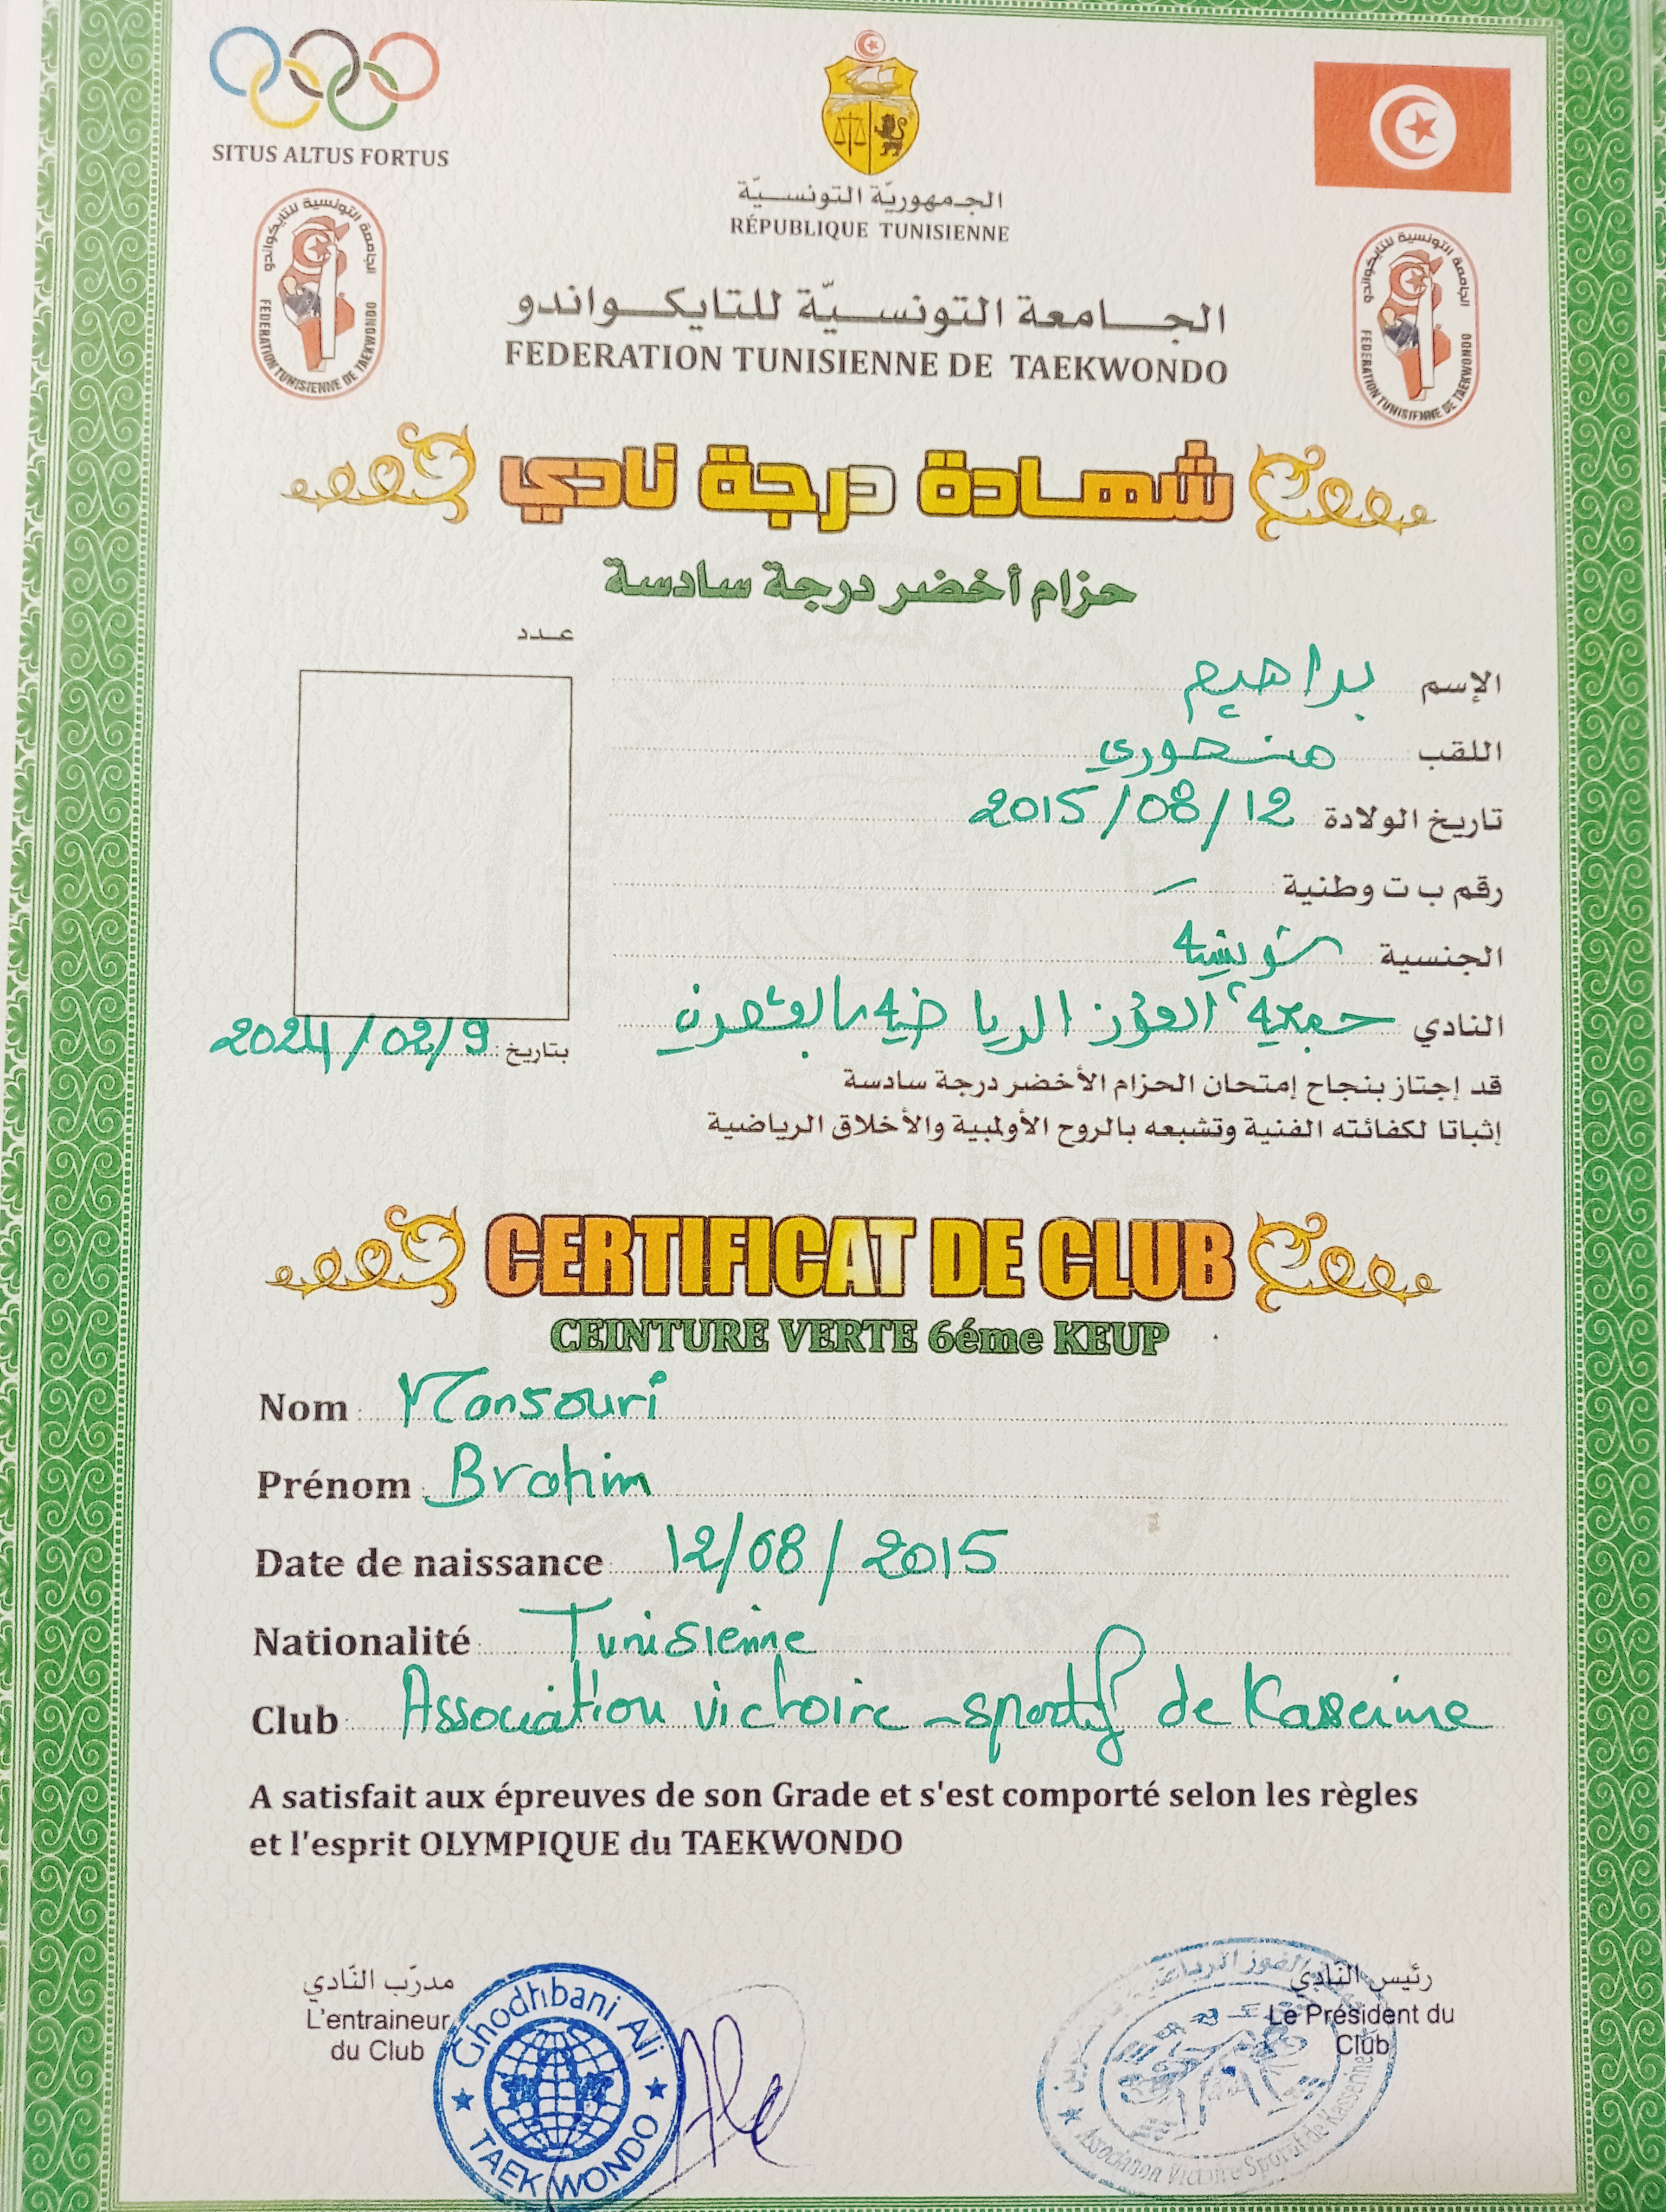 SITUS ALTUS FORTUS
الجمهوريّة التونسيّة
RÉPUBLIQUE TUNISIENNE
الجامعة التونسية للتايكواندو
FEDERATION TUNISIENNE DE TAEKWONDO
الجامعة التونسية للتايكواندو
FEDERATION TUNISIENNE DE TAEKWONDO
الجامعة التونسيّة للتايكواندو
FEDERATION TUNISIENNE DE TAEKWONDO
شهادة درجة نادي
حزام أخضر درجة سادسة
عدد
الإسم براهيم
اللقب منصوري
تاريخ الولادة 2015/08/12
رقم ب ت وطنية -
الجنسية تونسية
النادي جمعية الفوز الرياضية بالقصرين
بتاريخ: 2024/02/9
قد إجتاز بنجاح إمتحان الحزام الأخضر درجة سادسة
إثباتا لكفائته الفنية وتشبعه بالروح الأولمبية والأخلاق الرياضية
CERTIFICAT DE CLUB
CEINTURE VERTE 6éme KEUP
Nom : Mansouri
Prénom : Brahim
Date de naissance : 12/08/2015
Nationalité : Tunisienne
Club : Association victoire - sportif de Kasserine
A satisfait aux épreuves de son Grade et s'est comporté selon les règles
et l'esprit OLYMPIQUE du TAEKWONDO
مدرّب النّادي
L'entraineur
du Club
Ghodhbani Ali
TAEKWONDO
رئيس النّادي
Le Président du
Club
الفوز الرياضية
Association Victoire Sportif de Kasserine